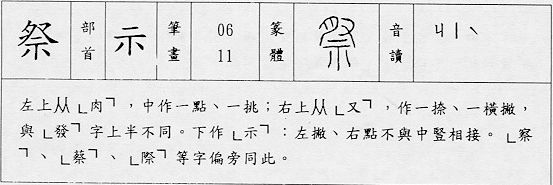 祭 部首 示 筆畫 06 11 篆體 祭 音讀 ㄐㄧˋ
左上从「肉」,中作一點、一挑;右上从「又」,作一捺、一橫撇,
與「發」字上半不同。下作「示」:左撇、右點不與中豎相接。「察
」、「蔡」、「際」等字偏旁同此。